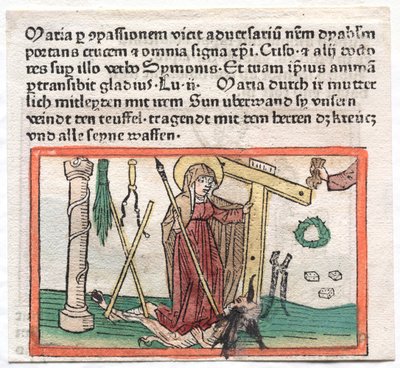 Maria ꝑ ꝯpassionem vicit aduersariũ nr̃m dyabl'm
portans crucem ⁊ omnia signa xp̃i. Criso. ⁊ alij
res suꝑ illo verbo Symonis. Et tuam ip̃ius animã
ꝑtransibit gladius. Lu. ij. Maria durch ir mutter
lich mitleyden mit irem Sun uberwand sy vnsern
veindt den teuffel. tragendt mit dem herren dz kreücz
vnd alle seyne waffen.